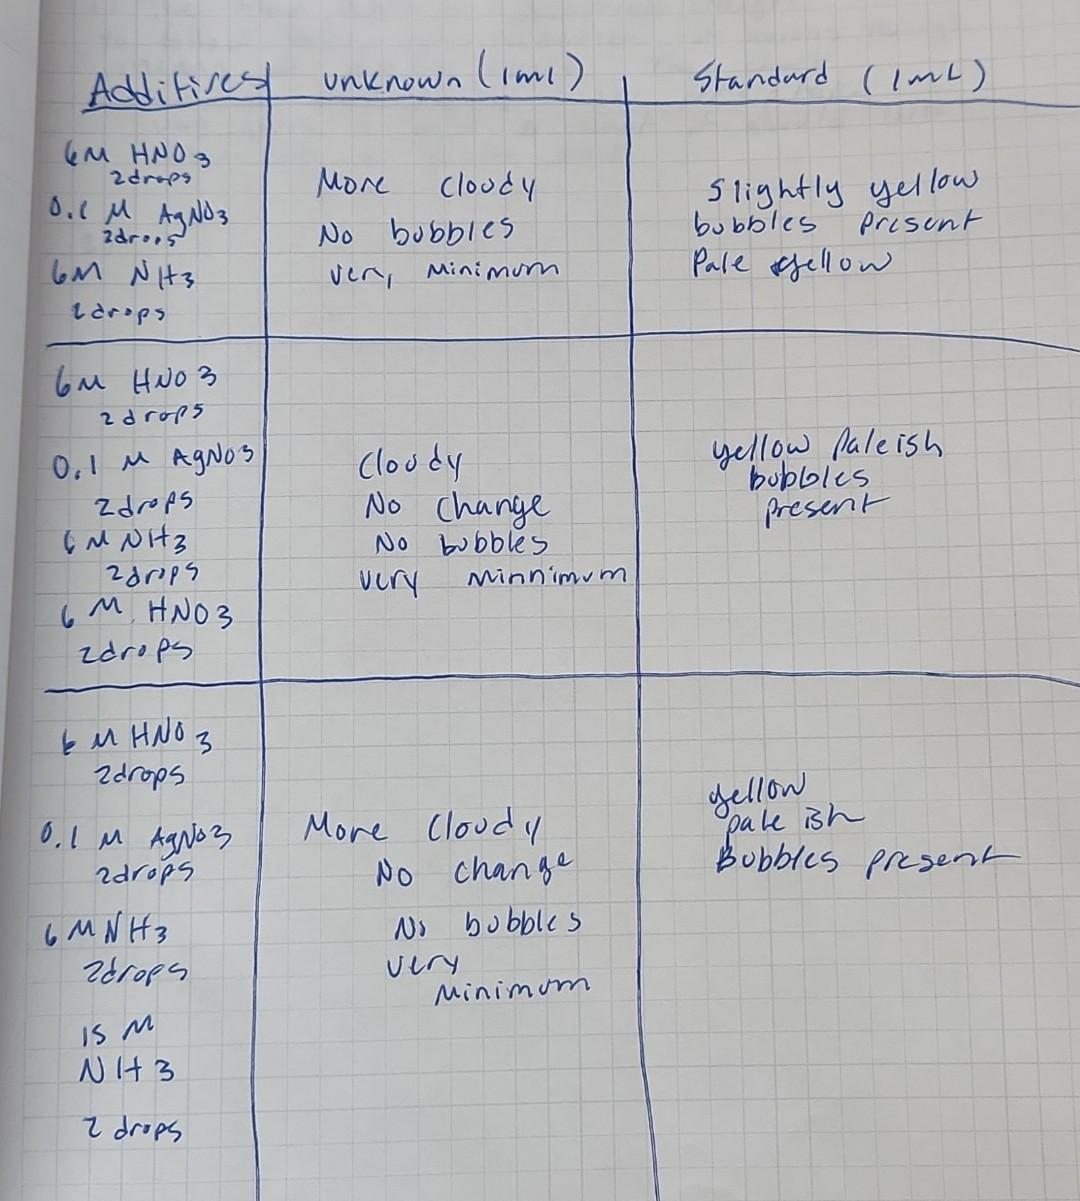 Additives unknown (1ml) Standard (1mL)
6M HNO3
2drops
0.1 M AgNO3
2drops
6M NH3
2drops
More cloudy
No bubbles
very, Minimum
Slightly yellow
bubbles present
Pale yellow
6M HNO3
2drops
0.1 M AgNO3
2drops
6M NH3
2drops
6 M HNO3
2drops
Cloudy
No Change
No bubbles
very minnimum
yellow Paleish
bubbles
present
6 M HNO3
2drops
0.1 M AgNO3
2drops
6 M NH3
2drops
15 M
NH3
2 drops
More Cloudy
No change
No bubbles
very
Minimum
yellow
pale ish
Bubbles present